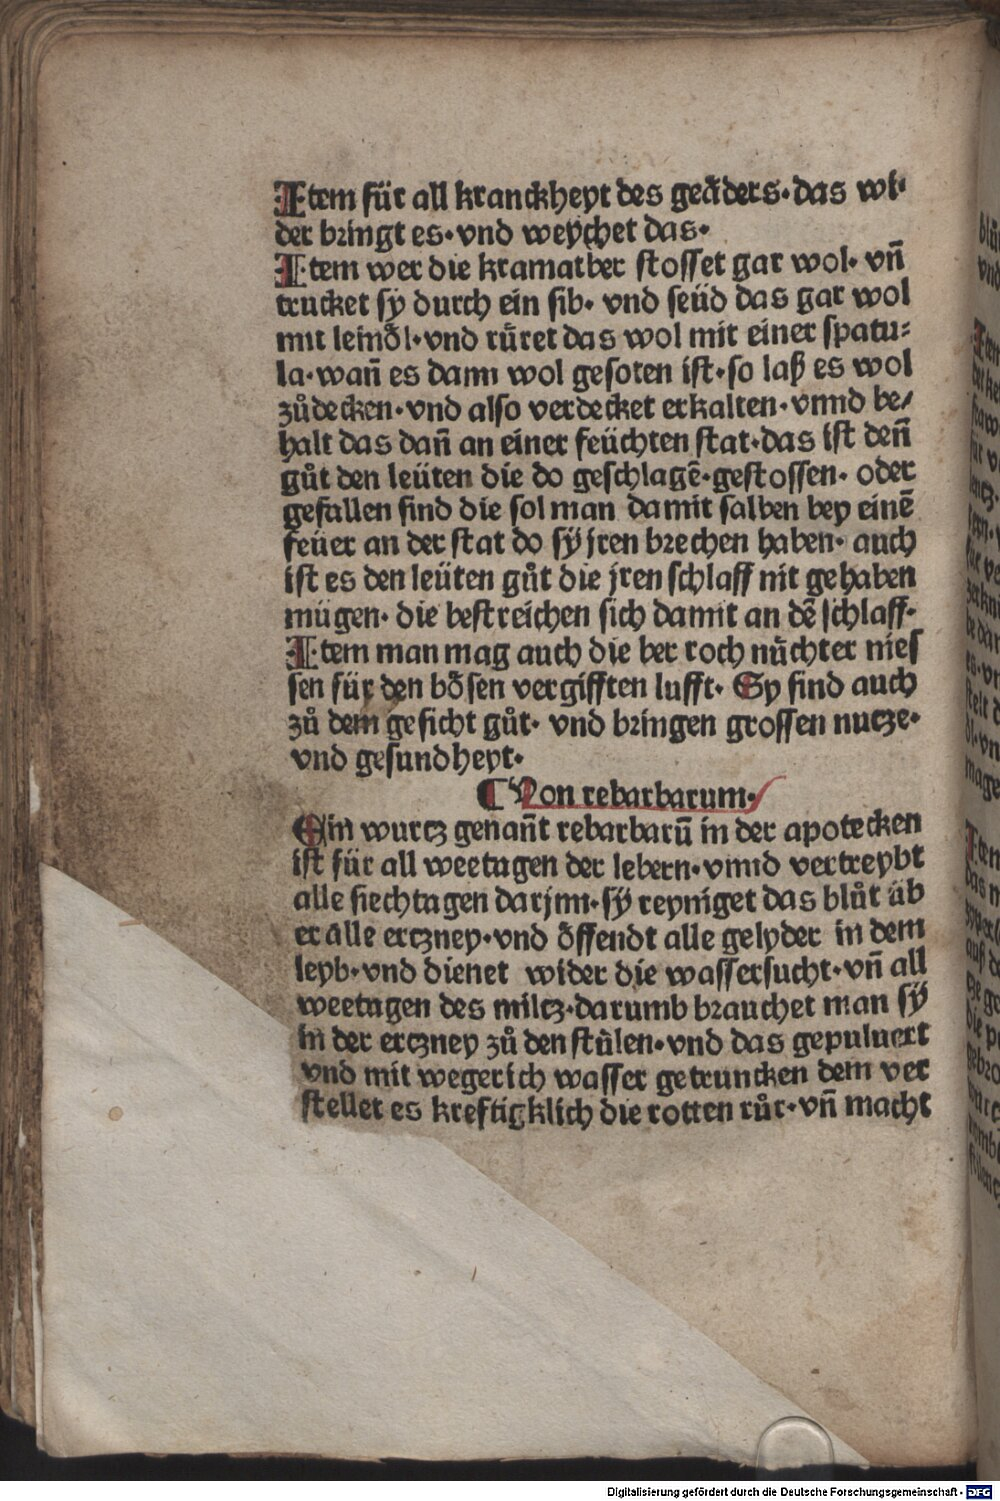 Item für all kranckheyt des geäders·das wi-
der bringt es·vnd weychet das·
Item wer die kramatber stosset gar wol· vñ
trucket sÿ durch ein sib· vnd seüd das gar wol
mit leinöl·vnd rüret das wol mit einer spatu=
la·wañ es dann wol gesoten ist·so laß es wol
zůdecken·vnd also verdecket erkalten·vnnd be/
halt das dañ an einer feüchten stat·das ist deñ
gůt den leüten die do geschlagē·gestossen· oder
gefallen sind die sol man damit salben bey einē
feüer an der stat do sÿ jren brechen haben· auch
ist es den leüten gůt die jren schlaff nit gehaben
mügen· die bestreichen sich damit an dē schlaff·
Item man mag auch die ber roch nüchter nies
sen für den bösen vergifften lufft· Sy sind auch
zů dem gesicht gůt· vnd bringen grossen nutze·
vnd gesundheyt·
¶ Von rebarbarum·
Ein wurcz genañt rebarbarū in der apotecken
ist für all weetagen der lebern·vnnd vertreybt
alle siechtagen darjnn·sÿ reyniget das blůt üb
er alle erczney·vnd öffendt alle gelyder in dem
leyb·vnd dienet wider die wassersucht·vñ all
weetagen des milcz·darumb brauchet man sÿ
in der erczney zů den stülen·vnd das gepuluert
vnd mit wegerich wasser getruncken dem ver
stellet es kreftigklich die rotten růr·vñ macht
Digitalisierung gefördert durch die Deutsche Forschungsgemeinschaft - DFG